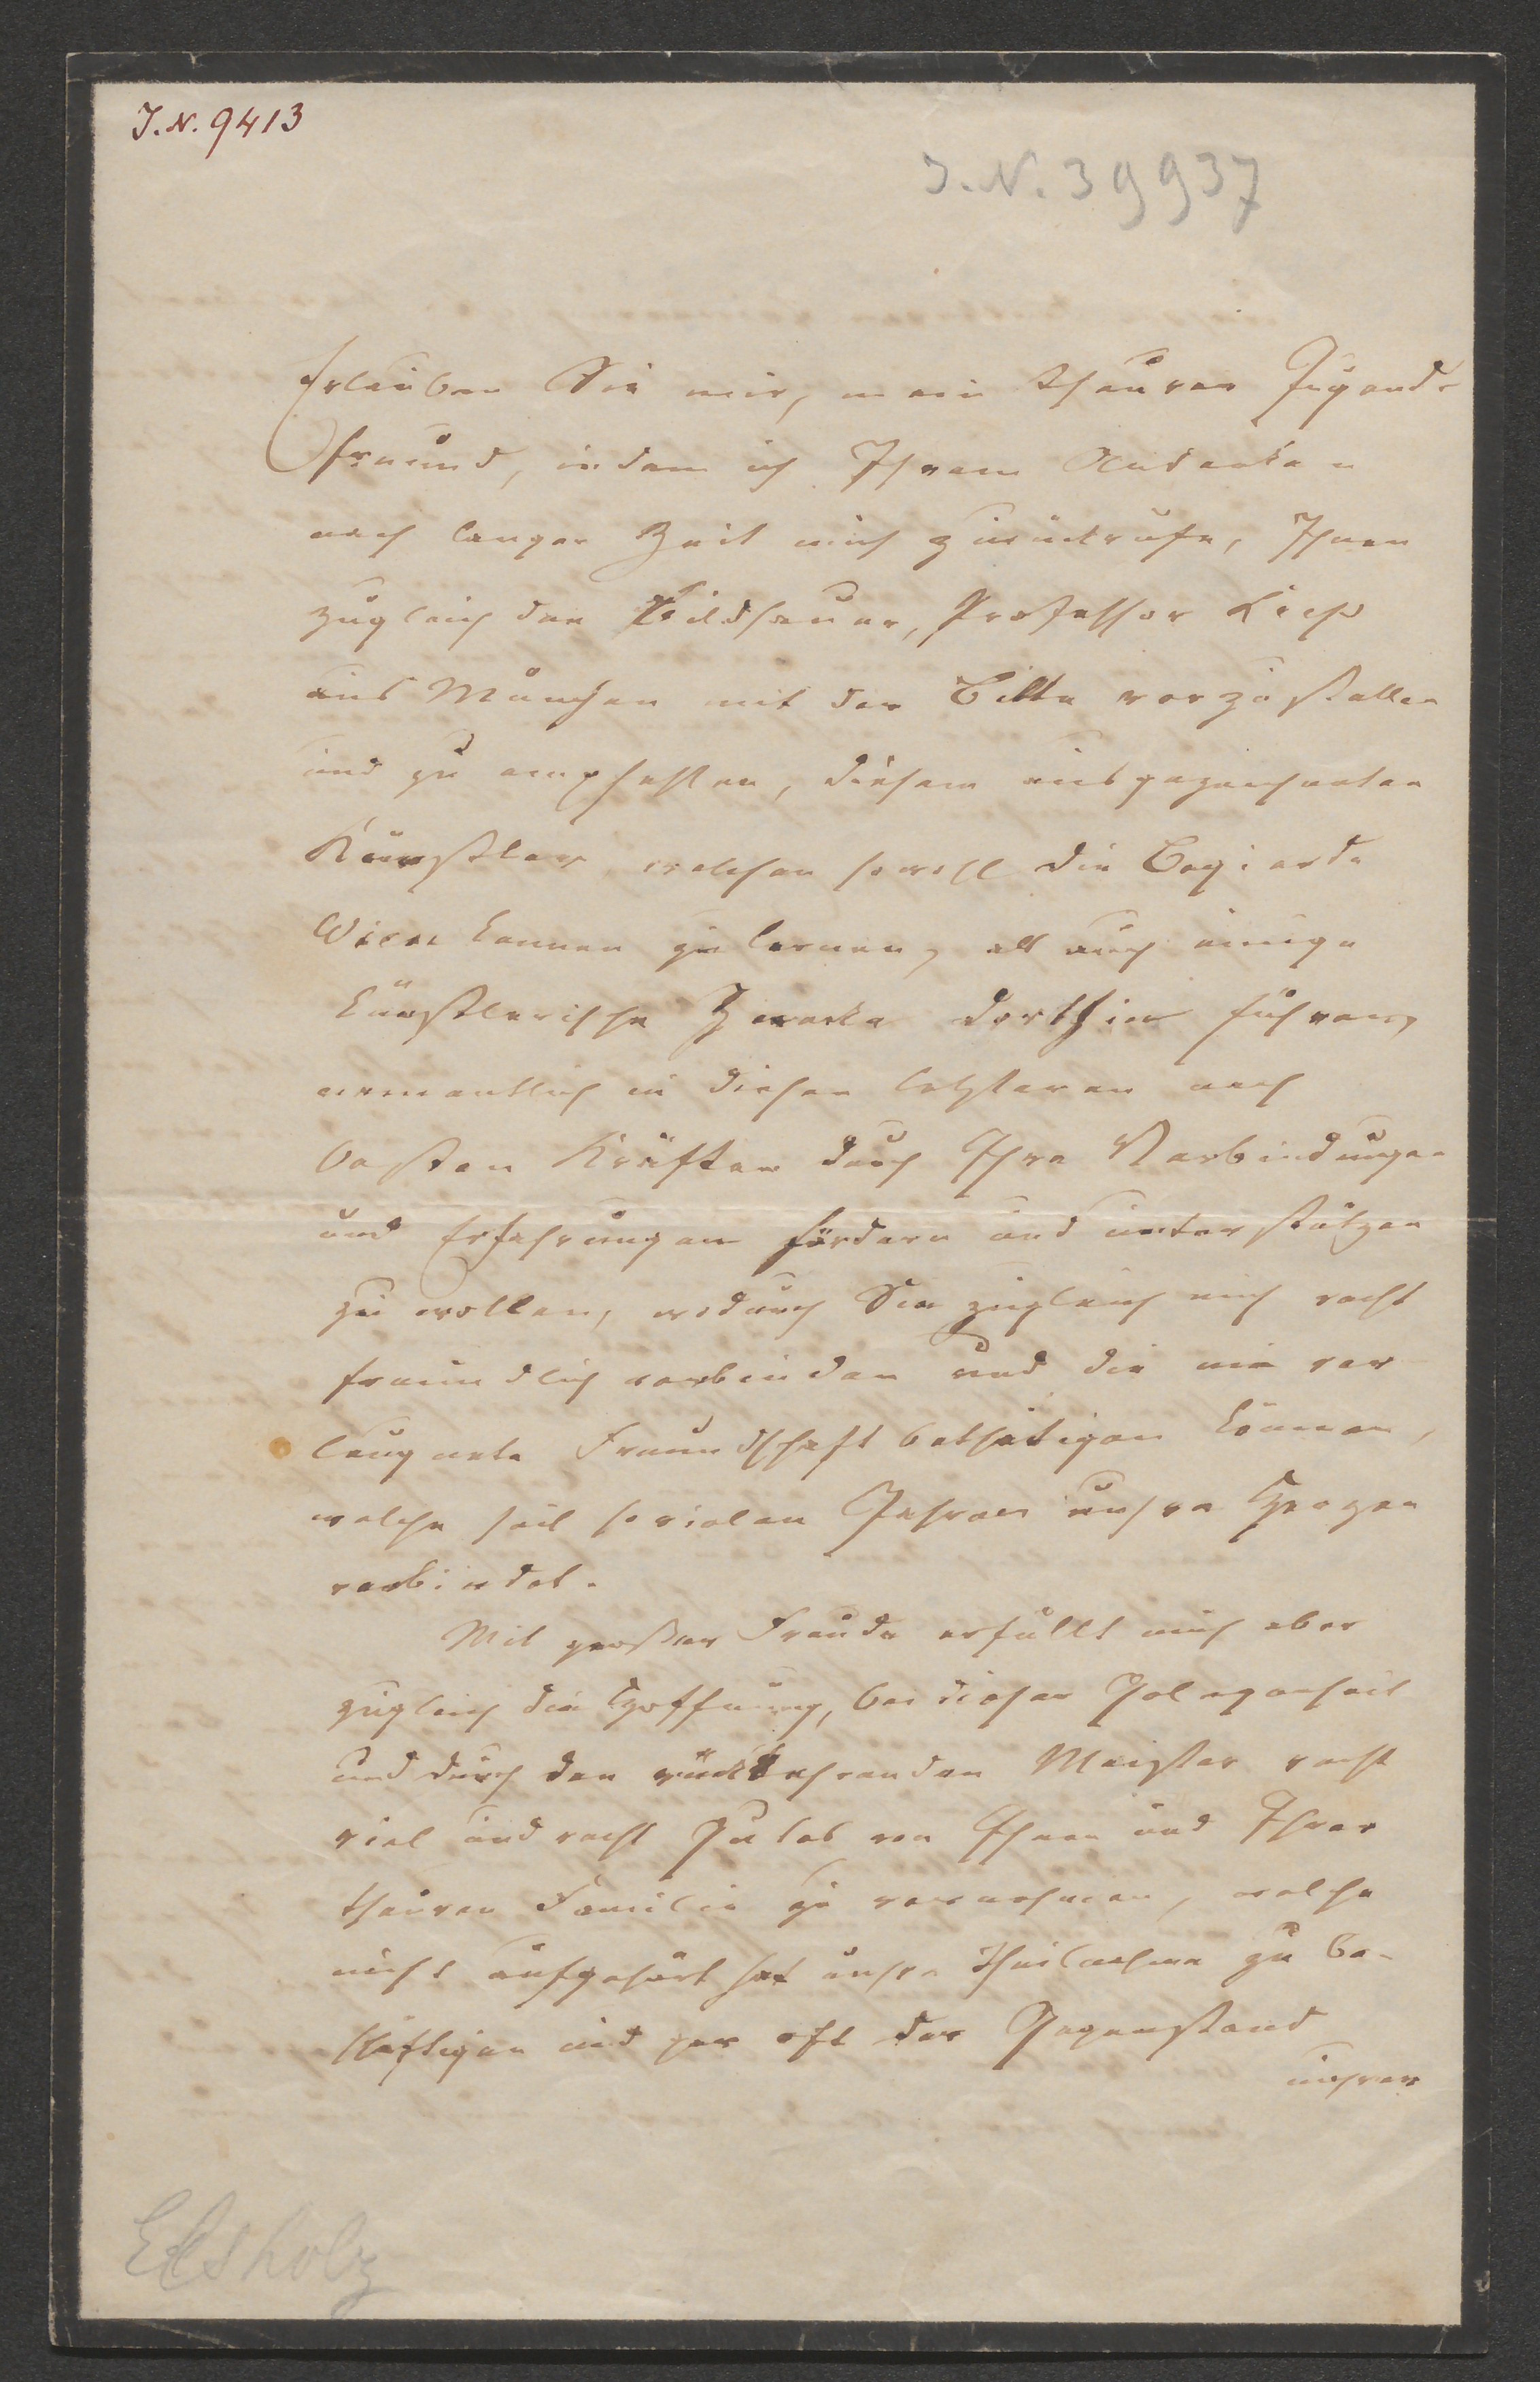 J. N. 9413
J. N. 39937
Erlauben Sie mir, mein theurer Jugend-
freund, indem ich Ihrem Andenken
nach langer Zeit mich zurückrufe, Ihnen
zugleich den Bildhauer, Professor
aus München mit der Bitte vorzustellen
und zu empfehlen, diesem ausgezeichneten
Künstler, welchen sowohl die Begierde
Wien kennen zu lernen, als auch einige
künstlerische Zwecke dorthin führen,
namentlich in diesen letzteren nach
besten Kräften durch Ihre Verbindungen
und Erfahrungen fördern und unterstützen
zu wollen, wodurch Sie zugleich mich recht
freundlich verbinden und die nie ver
leugnete Freundschaft bethätigen können,
welche seit sovielen Jahren unsre Herzen
verbindet.
Mit großer Freude erfüllt mich aber
zugleich die Hoffnung, bei dieser Gelegenheit
und durch den rückkehrenden Meister recht
viel und recht Gutes von Ihnen und Ihrer
theuren Familie zu vernehmen, welche
nicht aufgehört hat unsre Theilnahme zu be-
schäftigen und gar oft der Gegenstand
unsrer
Elsholz